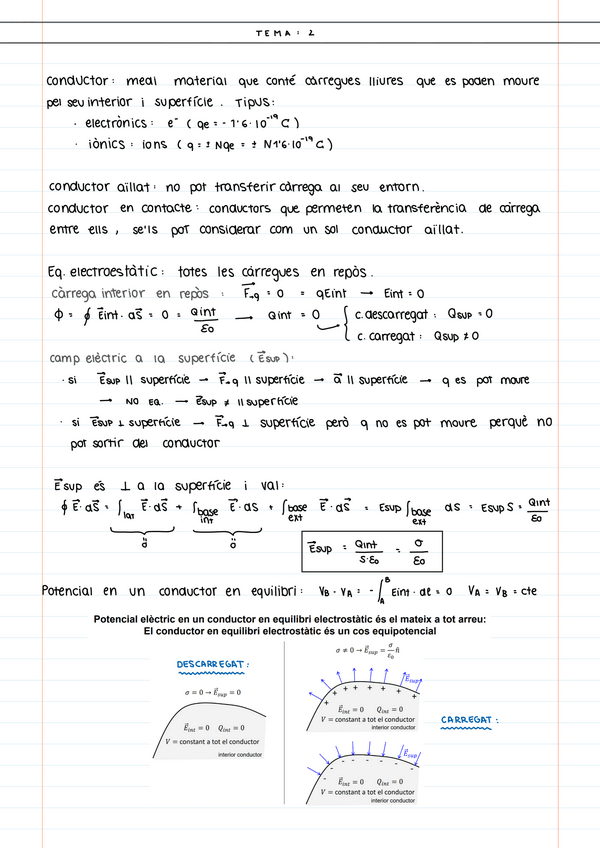 TEMA: 2
conductor: medi material que conté càrregues lliures que es poden moure
pel seu interior i superfície. Tipus:
· electrònics: e⁻ (qe = -1'6·10⁻¹⁹ C)
· iònics: ions (q = ± Nqe = ± N1'6·10⁻¹⁹ C)
conductor aïllat: no pot transferir càrrega al seu entorn.
conductor en contacte: conductors que permeten la transferència de càrrega
entre ells, se'ls pot considerar com un sol conductor aïllat.
Eq. electroestàtic: totes les càrregues en repòs.
càrrega interior en repòs: F⃗→q = 0 = qEint → Eint = 0
Φ = ∮ E⃗int · dS⃗ = 0 = Qint/ε0 → Qint = 0 { c. descarregat: Qsup = 0
c. carregat: Qsup ≠ 0
camp elèctric a la superfície (E⃗sup):
· si E⃗sup || superfície → F⃗→q || superfície → a⃗ || superfície → q es pot moure
→ NO EQ. → E⃗sup ≠ || superfície
· si E⃗sup ⊥ superfície → F⃗→q ⊥ superfície però q no es pot moure perquè no
pot sortir del conductor
E⃗sup és ⊥ a la superfície i val:
∮ E⃗ · dS⃗ = ∫lat E⃗ · dS⃗ + ∫base int E⃗ · dS + ∫base ext E⃗ · dS⃗ = Esup ∫base ext dS = Esup S = Qint/ε0
0 0
E⃗sup = Qint/S·ε0 = σ/ε0
Potencial en un conductor en equilibri: VB - VA = -∫A^B Eint · dl = 0 VA = VB = cte
Potencial elèctric en un conductor en equilibri electrostàtic és el mateix a tot arreu:
El conductor en equilibri electrostàtic és un cos equipotencial
DESCARREGAT:
σ = 0 → E⃗sup = 0
E⃗int = 0 Qint = 0
V = constant a tot el conductor
interior conductor
σ ≠ 0 → E⃗sup = σ/ε0 n̂
E⃗sup
+ + + + + + + +
E⃗int = 0 Qint = 0
V = constant a tot el conductor
interior conductor
CARREGAT:
E⃗sup
- - - - - - - -
E⃗int = 0 Qint = 0
V = constant a tot el conductor
interior conductor